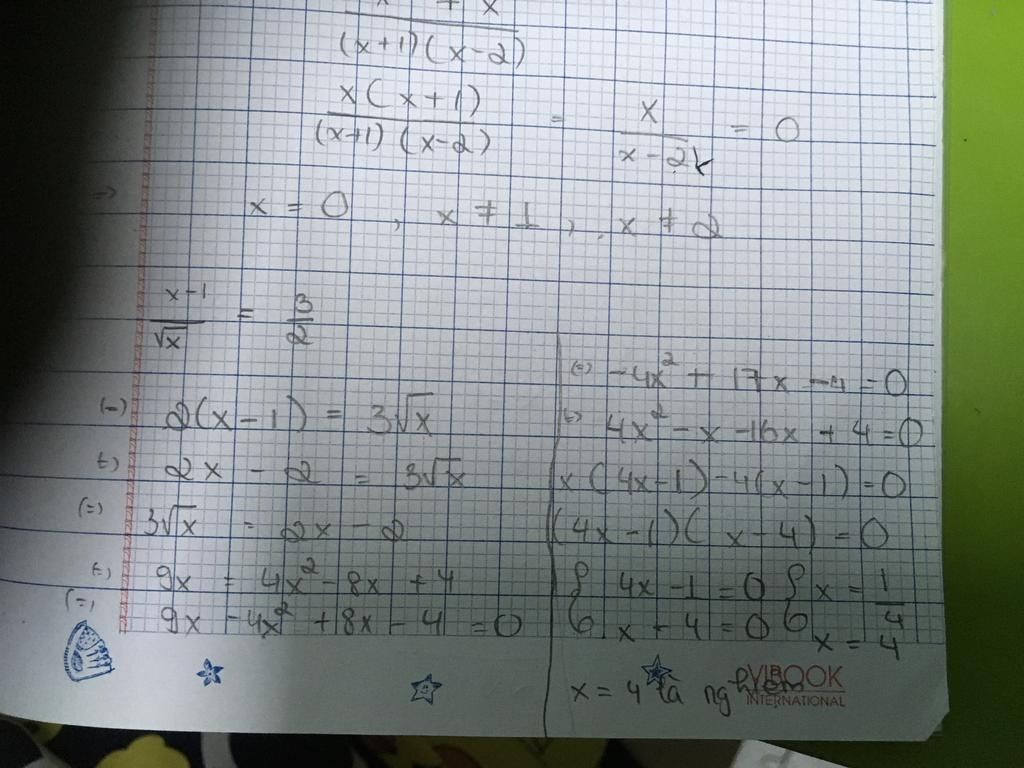 (x+1)(x-2)
x(x+1) / (x+1)(x-2) = x / x-2 = 0
=> x = 0, x ≠ 1, x ≠ 2
x-1 / √x = 3 / 2
(=) 2(x-1) = 3√x
(=) 2x - 2 = 3√x
(=) 3√x = 2x - 2
(=) 9x = 4x² - 8x + 4
(=) 9x - 4x² + 8x - 4 = 0
(=) -4x² + 17x - 4 = 0
(=) 4x² - x - 16x + 4 = 0
x(4x-1) - 4(x-1) = 0
(4x-1)(x-4) = 0
4x - 1 = 0 x = 1/4
x + 4 = 0 x = 4
x = 4 là nghệm
VIBOOK
INTERNATIONAL